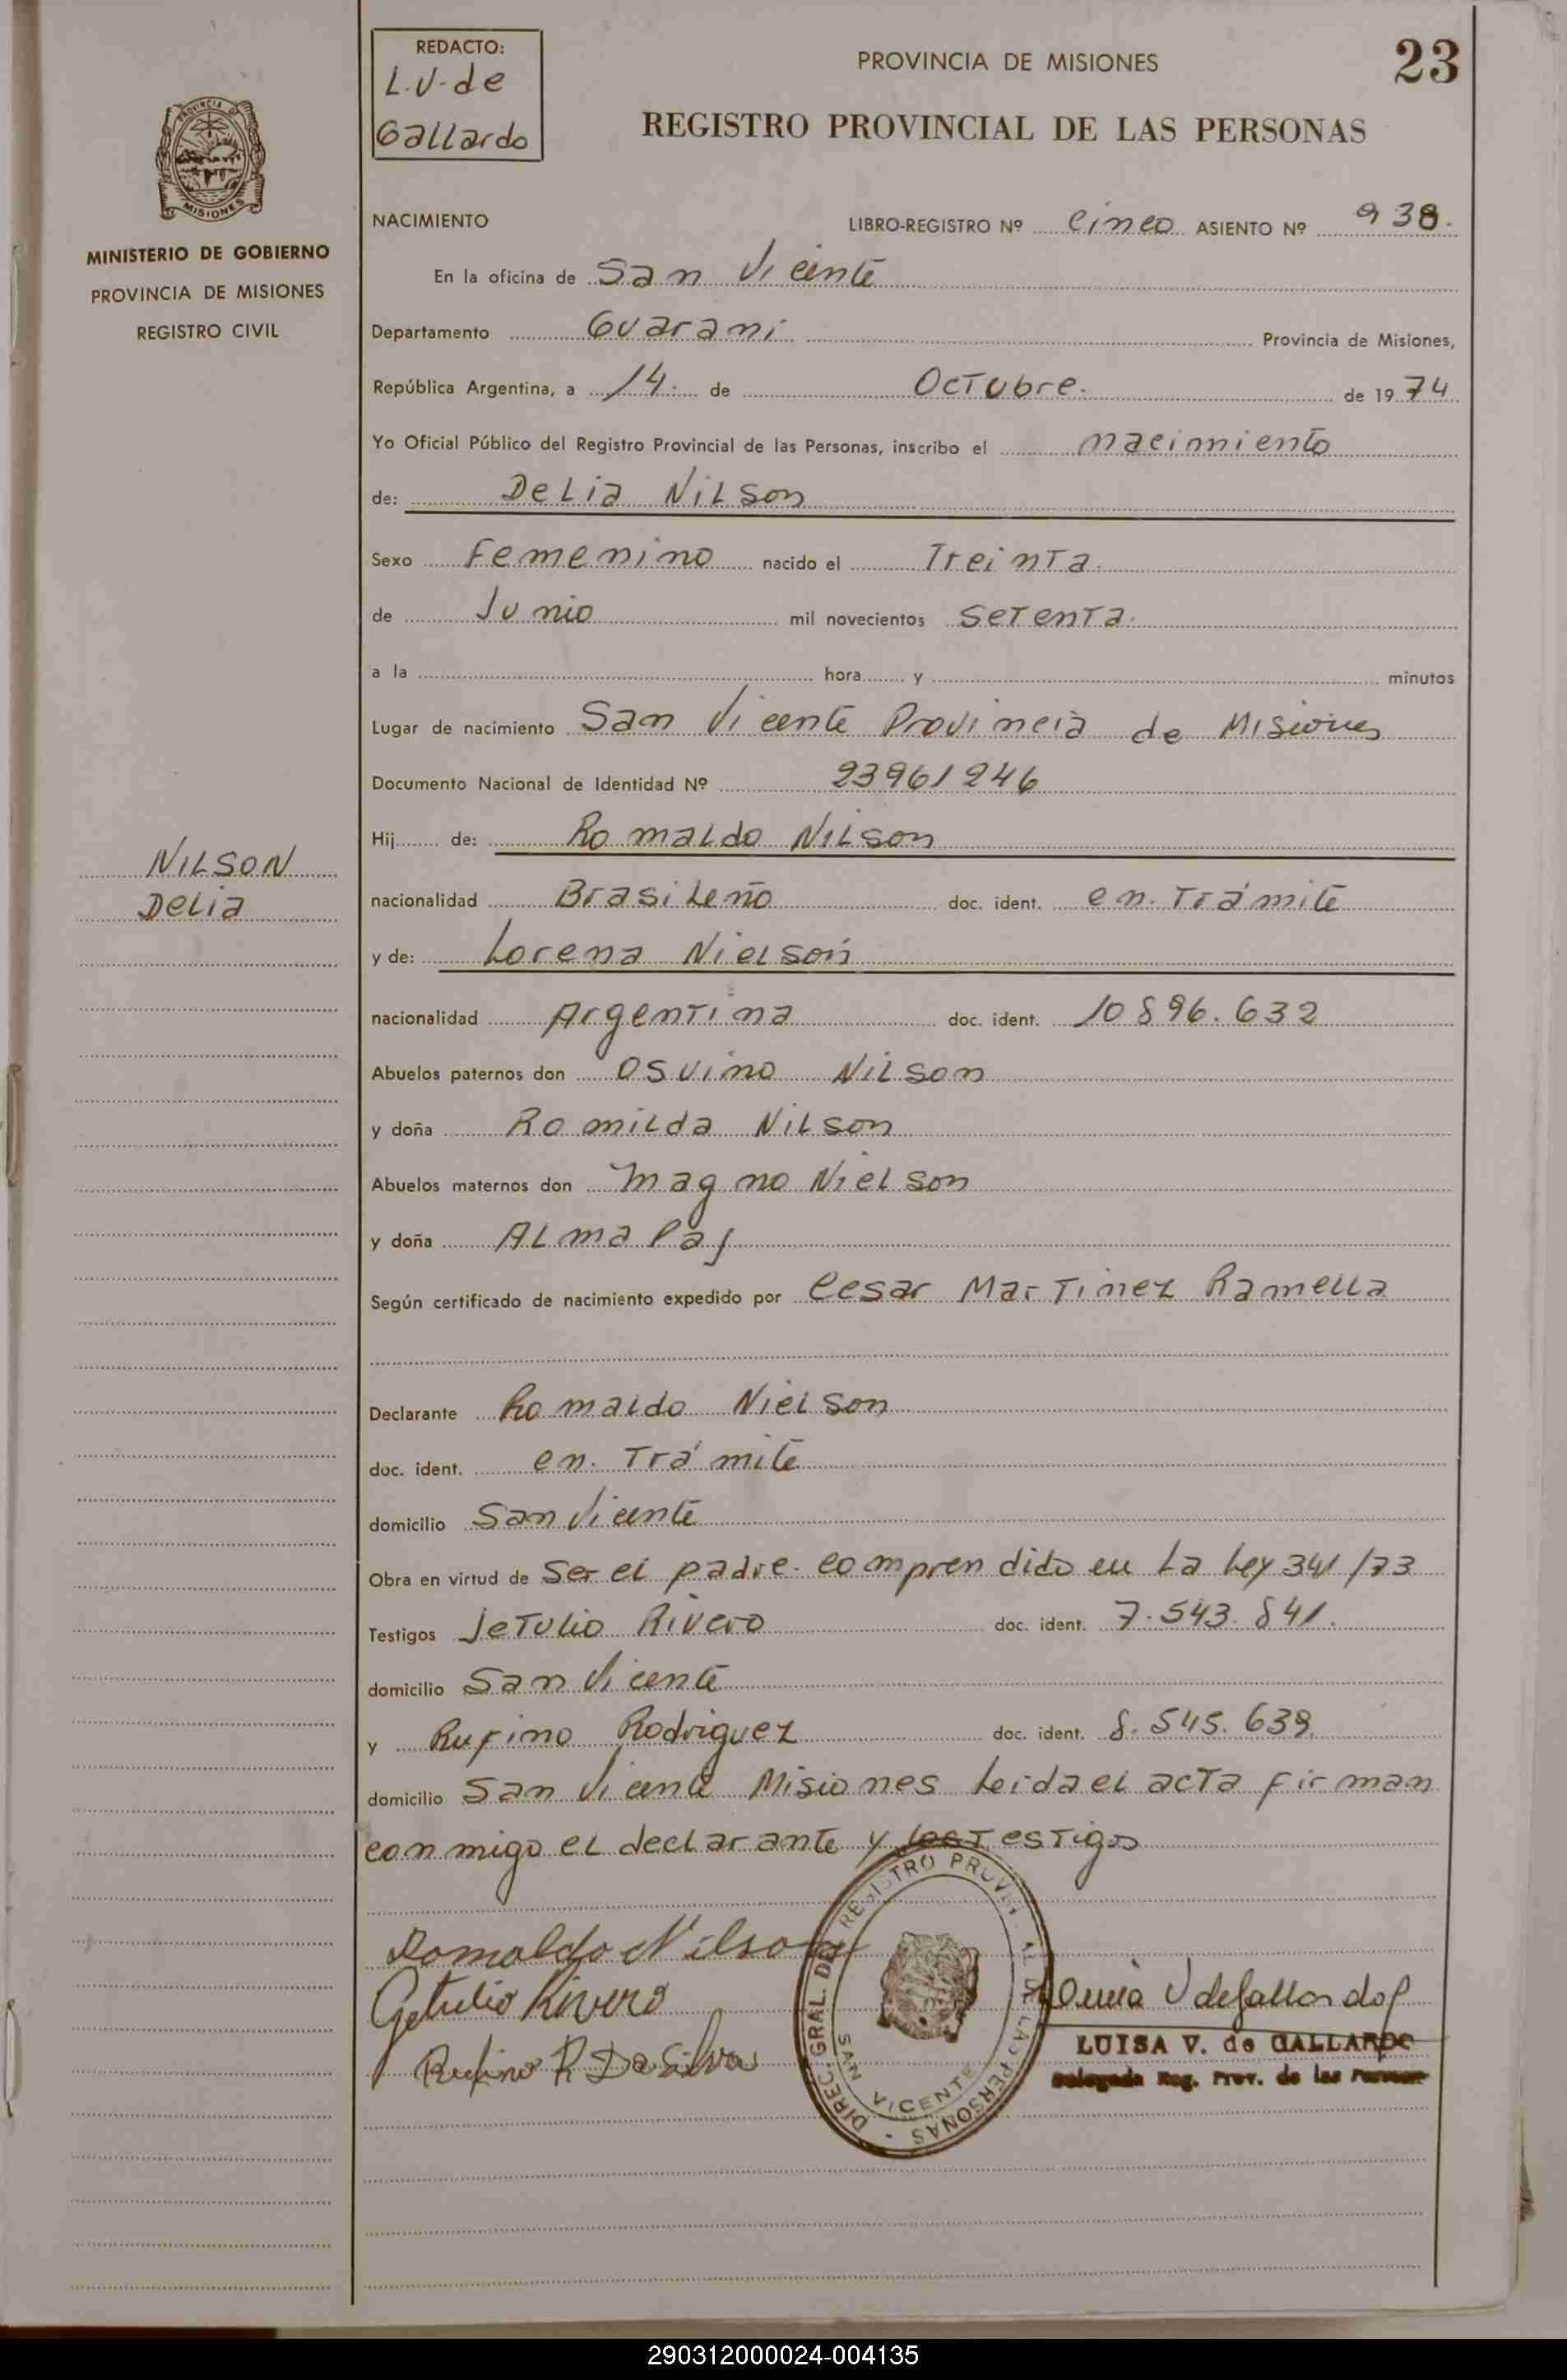 REDACTO:
L.V. de
Gallardo
PROVINCIA DE MISIONES
23
REGISTRO PROVINCIAL DE LAS PERSONAS
MINISTERIO DE GOBIERNO
PROVINCIA DE MISIONES
REGISTRO CIVIL
NACIMIENTO LIBRO-REGISTRO Nº cinco ASIENTO Nº 938.
En la oficina de San Vicente
Departamento Guarani Provincia de Misiones,
República Argentina, a 14. de Octubre. de 1974
Yo Oficial Público del Registro Provincial de las Personas, inscribo el nacimiento
de: Delia Nilson
Sexo Femenino nacido el Treinta
de Junio mil novecientos Setenta.
a la hora y minutos
Lugar de nacimiento San Vicente Provincia de Misiones
Documento Nacional de Identidad Nº 23961246
Hij de: Romaldo Nilson
NILSON
Delia
nacionalidad Brasileño doc. ident. en. Trámite
y de: Lorena Nielson
nacionalidad Argentina doc. ident. 10896.632
Abuelos paternos don Osvino Nilson
y doña Romilda Nilson
Abuelos maternos don Magno Nielson
y doña Alma
Según certificado de nacimiento expedido por Cesar Martinez Ramella
Declarante Romaldo Nielson
doc. ident. en. Trámite
domicilio San Vicente
Obra en virtud de Ser el padre. comprendido en La Ley 341/73
Testigos Jetulio Rivero doc. ident. 7.543.841.
domicilio San Vicente
y Rufino Rodriguez doc. ident. 8.545.639.
domicilio San Vicente Misiones Leida el acta firman
conmigo el declarante y los Testigos
Romaldo Nilson
Getulio Rivero
Rufino R Da Silva
DIREC. GRAL. DEL REGISTRO PROVINCIAL DE LAS PERSONAS
SAN VICENTE
Luisa V de Gallardo
LUISA V. de GALLARDO
Delegada Reg. Prov. de las Personas
290312000024-004135